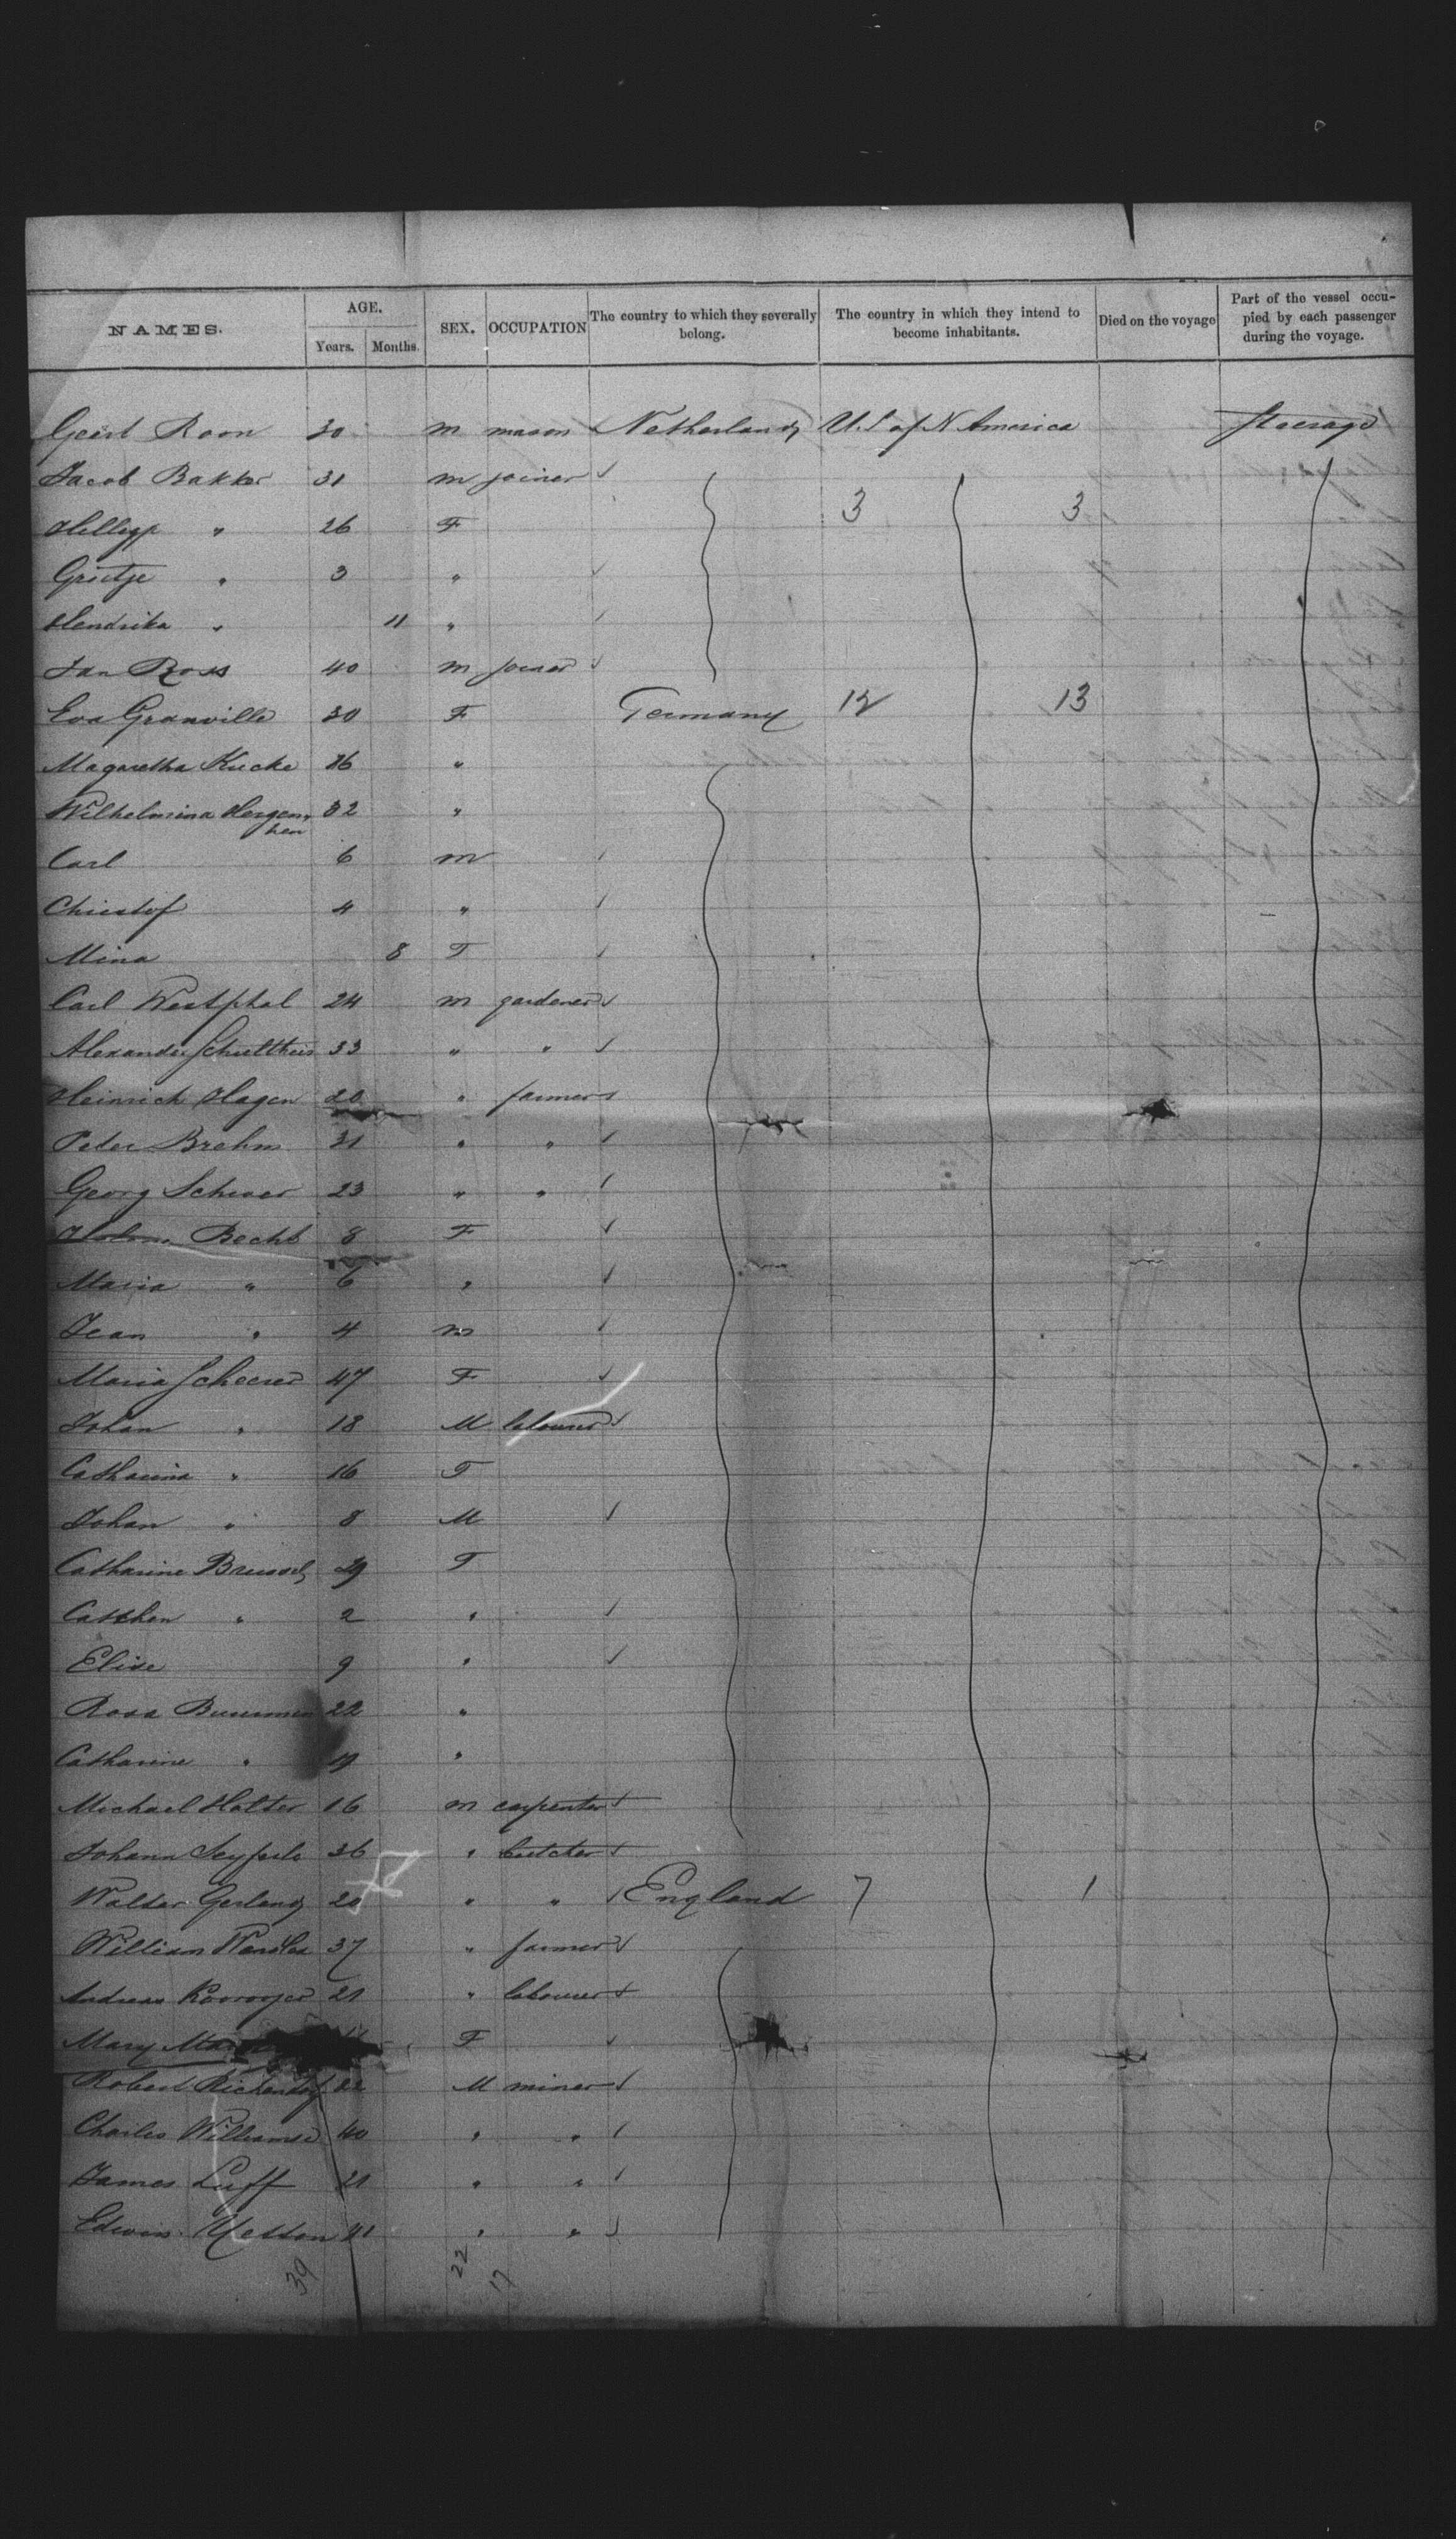 NAMES. AGE. SEX. OCCUPATION The country to which they severally belong. The country in which they intend to become inhabitants. Died on the voyage Part of the vessel occupied by each passenger during the voyage.
Years. Months.
Geert Roon 30 m mason Netherlands U.S of N America Steerage
Jacob Bakker 31 m joiner ✓
3 3
Hillegp " 26 F
Grietje " 3 " ✓
Hendrika " 11 " ✓
Jan Ross 40 m joiner ✓
Eva Granville 30 F Germany 12 13
Magaretha Kucke 36 "
Wilhelmina Hergen, 32 "
hen
Carl 6 m ✓
Christof 4 " ✓
Mina 8 F ✓
Carl Westphal 24 m gardener ✓
Alexander Schultheis 33 " " ✓
Heinrich Hagen 20 " farmer ✓
Peter Brehm 31 " " ✓
Georg Scheuer 23 " " ✓
Becht 8 F ✓
Maria " 6 " ✓
Jean " 4 m ✓
Maria Scheerer 47 F ✓
Johan " 18 M labourer ✓
Catharina " 16 F
Johan " 8 M ✓
Catharine Brussel, 29 F
Catchen " 2 " ✓
Elise 9 " ✓
Rosa 22 "
Catharine " 19 "
Michael Halter 16 m carpenter ✓
Johann Seyferle 36 " butcher ✓
Walter 20 " " ✓ England 7 1
William 37 " farmer ✓
Andreas 21 " labourer ✓
Mary F ✓
Robert 22 M miner ✓
Charles Williams 40 " " ✓
James Luff 21 " " ✓
Edwin 41 " " ✓
39 22 17